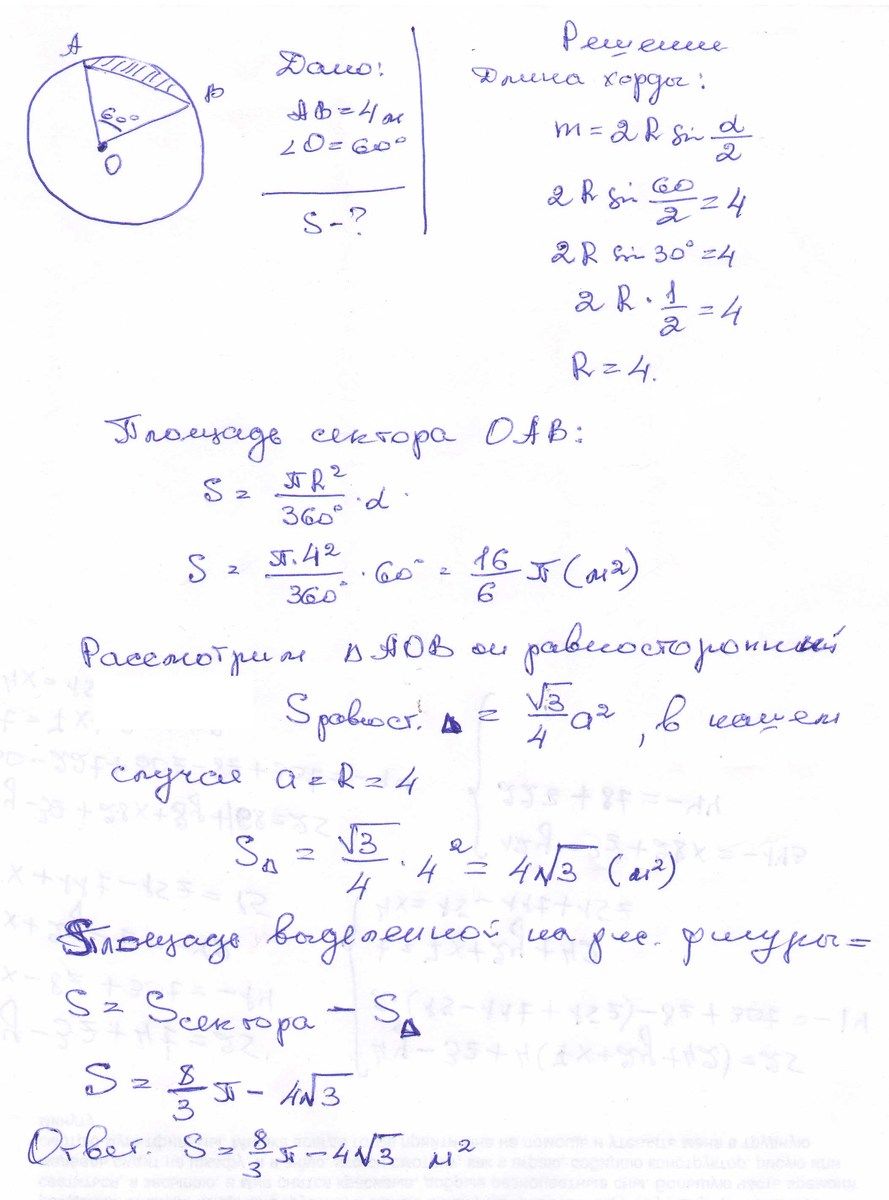 A
B
60°
O
Дано:
AB = 4 м
∠O = 60°
S - ?
Решение
Длина хорды:
m = 2 R sin α/2
2 R sin 60/2 = 4
2 R sin 30° = 4
2 R · 1/2 = 4
R = 4.
Площадь сектора OAB:
S = πR²/360° · α
S = π·4²/360° · 60° = 16/6 π (м²)
Рассмотрим Δ AOB он равносторонний
S равност. Δ = √3/4 a², в нашем
случае a = R = 4
SΔ = √3/4 · 4² = 4√3 (м²)
Площадь выделенной на рис. фигуры =
S = Sсектора - SΔ
S = 8/3 π - 4√3
Ответ. S = 8/3 π - 4√3 м²